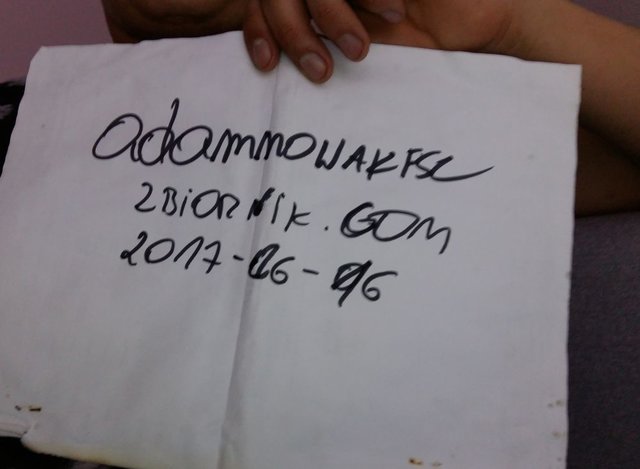 adammnowakfsc
ZBiORNiK.COM
2017-06-06